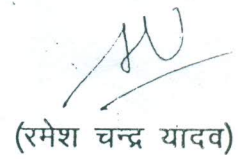 (रमेश चन्द्र यादव)